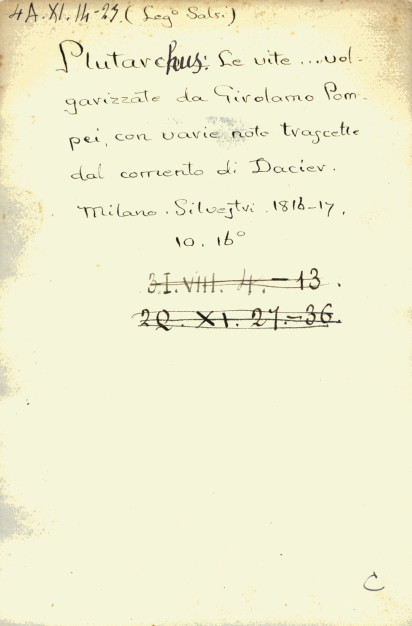 4A.XI.14-23 (Leg° Salvi)
Plutarchus: Le vite ... vol-
garizzate da Girolamo Pom-
pei, con varie note trascelte
dal comento di Dacier.
Milano. Silvestri. 1816-17.
10. 16°
3.I.VIII. 4.-13.
2Q. XI. 27.-36.
C